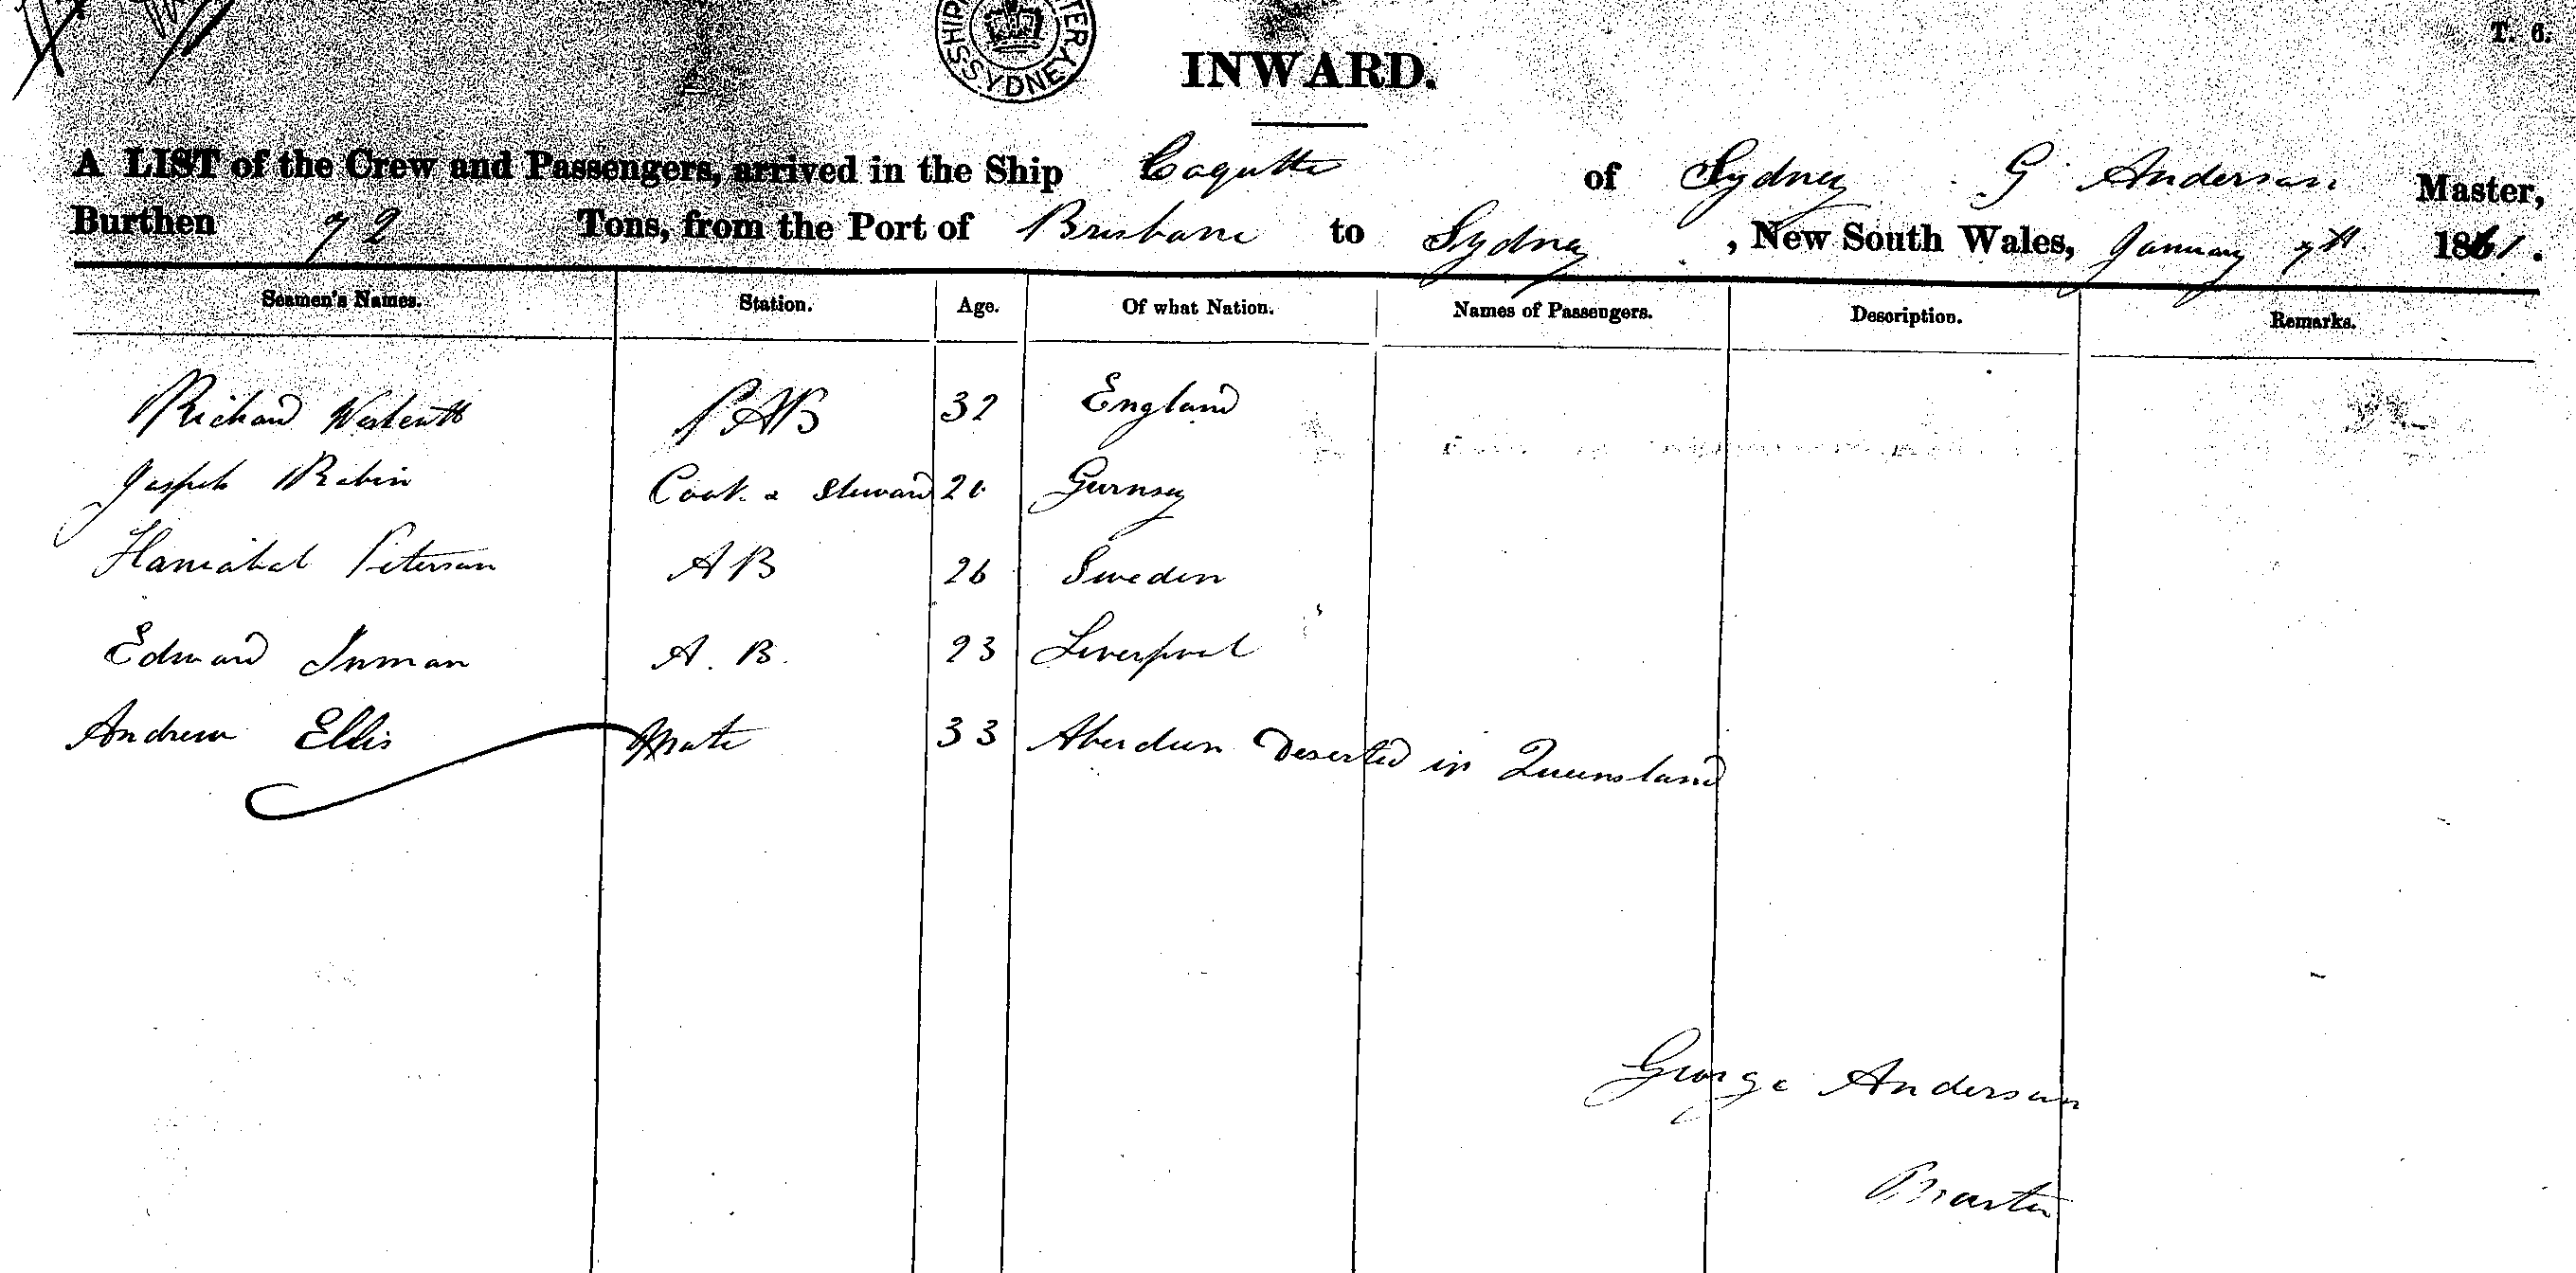 SHIP TER SYDNEY
T. 6.
INWARD.
A LIST of the Crew and Passengers, arrived in the Ship Coquette of Sydney G Anderson Master,
Burthen 72 Tons, from the Port of Brisbane to Sydney, New South Wales, January 7th 1861.
Seamen's Names. Station. Age. Of what Nation. Names of Passengers. Description. Remarks.
Richard AB 32 England
Joseph Robin Cook & Steward 20 Gurnsey
Hanniabal Peterson AB 26 Sweden
Edward Inman A. B. 23 Liverpool
Andrew Ellis Mate 33 Aberdeen Deserted in Queensland
George Anderson
Master